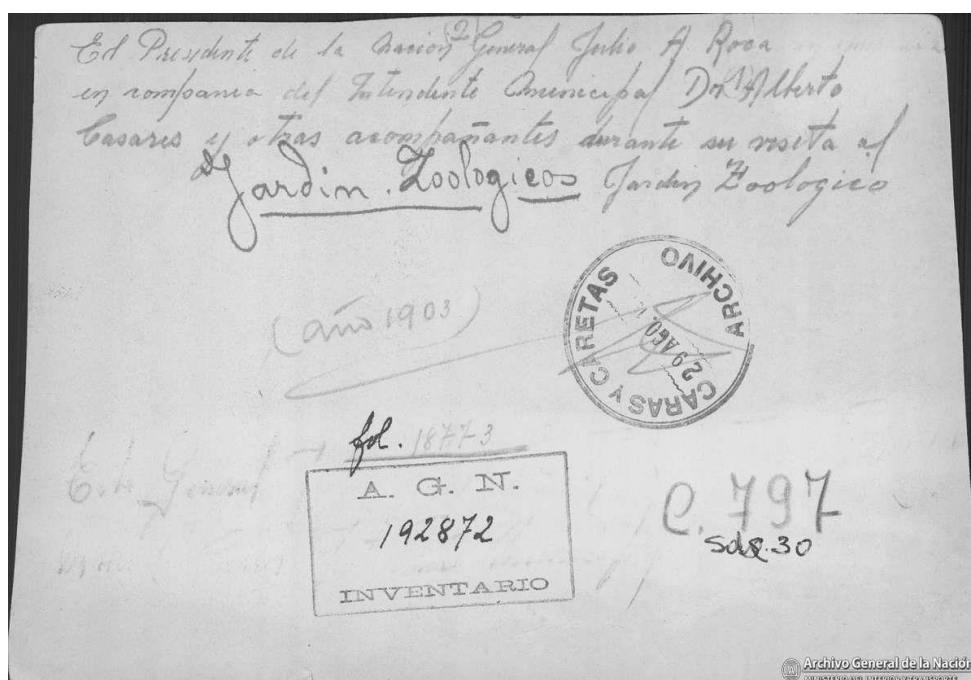 El Presidente de la Nacion General Julio A Roca
en compania del Intendente Municipal Don Alberto
Casares y otras acompañantes durante su visita al
Jardin Zoologicos Jardin Zoologico
(año 1903)
CARAS Y CARETAS ARCHIVO
29 AGO.
fol. 1877-3
A. G. N.
192872
INVENTARIO
C. 797
30
Este General
Archivo General de la Nación
MINISTERIO DEL INTERIOR Y TRANSPORTE